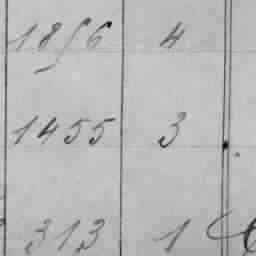 1856 4
1455 3
313 1